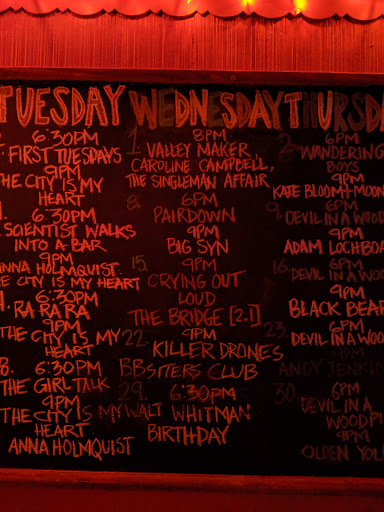 TUESDAY
6:30PM
FIRST TUESDAYS
9PM
THE CITY IS MY
HEART
6:30PM
SCIENTIST WALKS
INTO A BAR
9PM
ANNA HOLMQUIST:
THE CITY IS MY HEART
6:30PM
RA RA RA
9PM
THE CITY IS MY
HEART
8. 6:30PM
THE GIRL TALK
9PM
THE CITY IS MY
HEART
ANNA HOLMQUIST
WEDNESDAY
1. 8PM
VALLEY MAKER,
CAROLINE CAMPBELL,
THE SINGLEMAN AFFAIR
8. 6PM
PAIRDOWN
9PM
BIG SYN
15. 9PM
CRYING OUT
LOUD
THE BRIDGE [2.1]
22. 9PM
KILLER DRONES
BBSITERS CLUB
29. 6:30PM
WALT WHITMAN
BIRTHDAY
THURSD
2. 6PM
WANDERING
BOYS
9PM
KATE BLOOM + MOON
9. 6PM
DEVIL IN A WOOD
9PM
ADAM LOCHBOA
16. 6PM
DEVIL IN A WOO
9PM
BLACK BEA
23. 6PM
DEVIL IN A WOO
9PM
ANDY JENKI
30. 6PM
DEVIL IN A
WOODP
9PM
OLDEN YOL